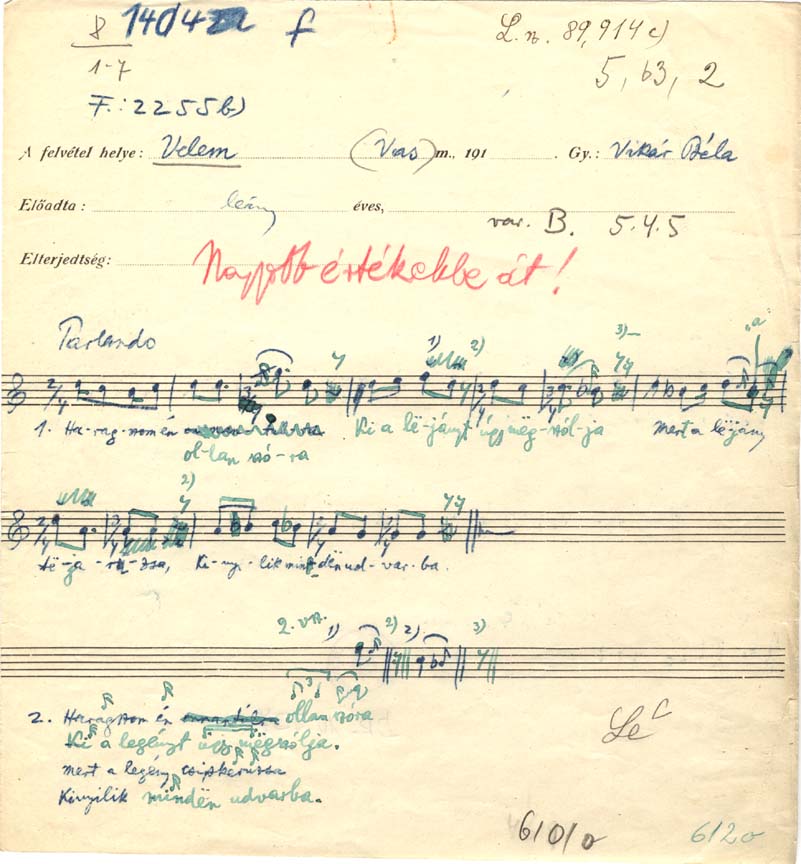 8 140/4 f L. n. 89,914 c)
1-7 5, 63, 2
F.: 2255b)
A felvétel helye: Velem (Vas) m., 191 . Gy.: Vikár Béla
Előadta: leány éves,
var. B. 5.4.5
Elterjedtség: Nagyobb értékekbe át!
Parlando 1) 2) 3) "a"
1. Ha-rag-szom én Ki a lë-jányt úgy mëg-szól-ja Mert a lë-jány
ol-lan szó-ra
2)
të-ja-ró-zsa, Ki-nyí-lik min-dën ud-var-ba.
2. vsz. 1) 2) 2) 3)
2. Haragszom én ollan szóra
Ki a legényt úgy mëgszólja.
Mert a legény csipkerózsa
Kinyilik mindën udvarba.
610/o 612o